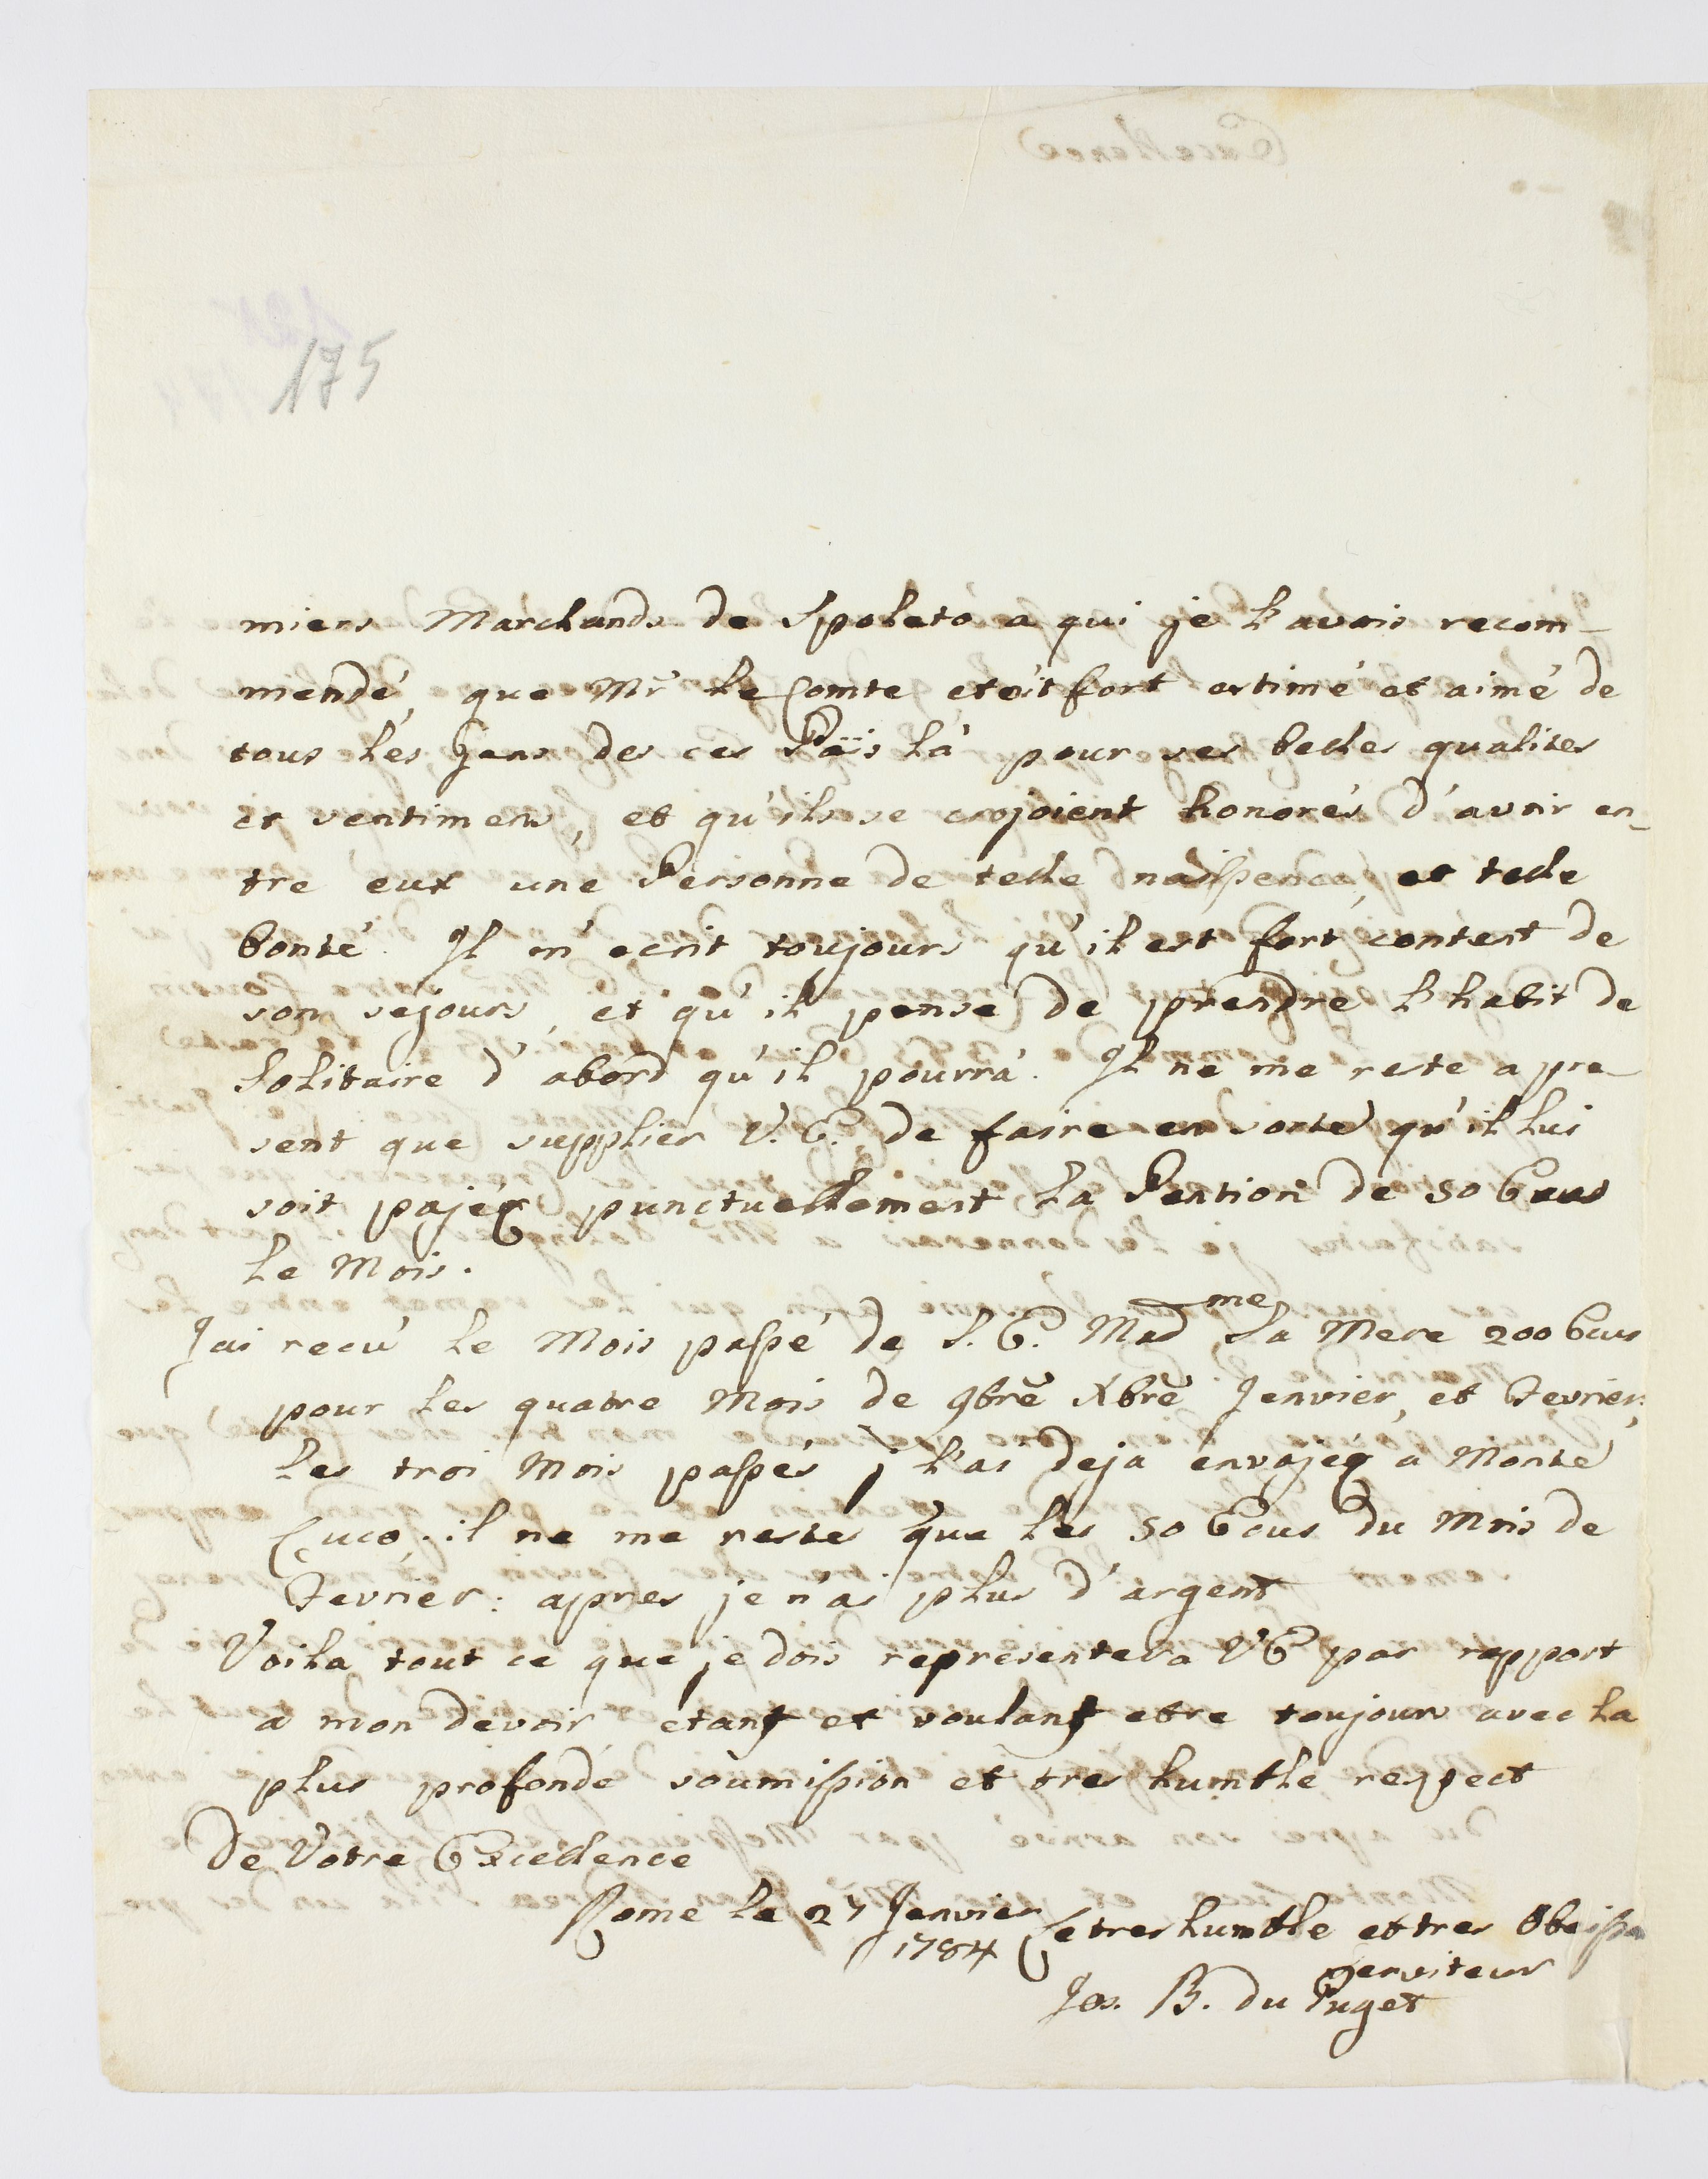 175
miers Marchands de Spoleto a qui je l'avois recom-
mendé, que Mr le Comte etoit fort estimé et aimé de
tous les Gens des ces Païs là pour ses belles qualites
et sentimens, et qu'ils se crojoient honorés d'avoir en-
tre eux une Personne de telle naissence, et telle
bonté. Il m'ecrit toujours qu'il est fort content de
son sejours, et qu'il pense de prendre l'habit de
Solitaire d'abord qu'il pourrà. Il ne me reste a pre-
sent que supplier V. E. de faire en sorte qu'il lui
soit pajée punctuellement la Pention de 50 Ecus
le Mois.
Jai recu le Mois passé de S. E. Madme la Mere 200 Ecus
pour les quatre Mois de 9bre Xbre Jenvier, et Fevrier:
les troi Mois passés j l'ai deja envajée a Monte
Luco; il ne me restes que les 50 Ecus du Mois de
Fevrier: apres je n'ai plus d'argent
Voila tout ce que je dois representera VE par rapport
a mon devoir, etant et voulant etre toujours avec la
plus profonde soumission et tres humble respect
De Votre Excellence
Rome le 27 Jenvier
1784
Le tres humble et tres Obeissa
Serviteur
Jos. B. du Puget